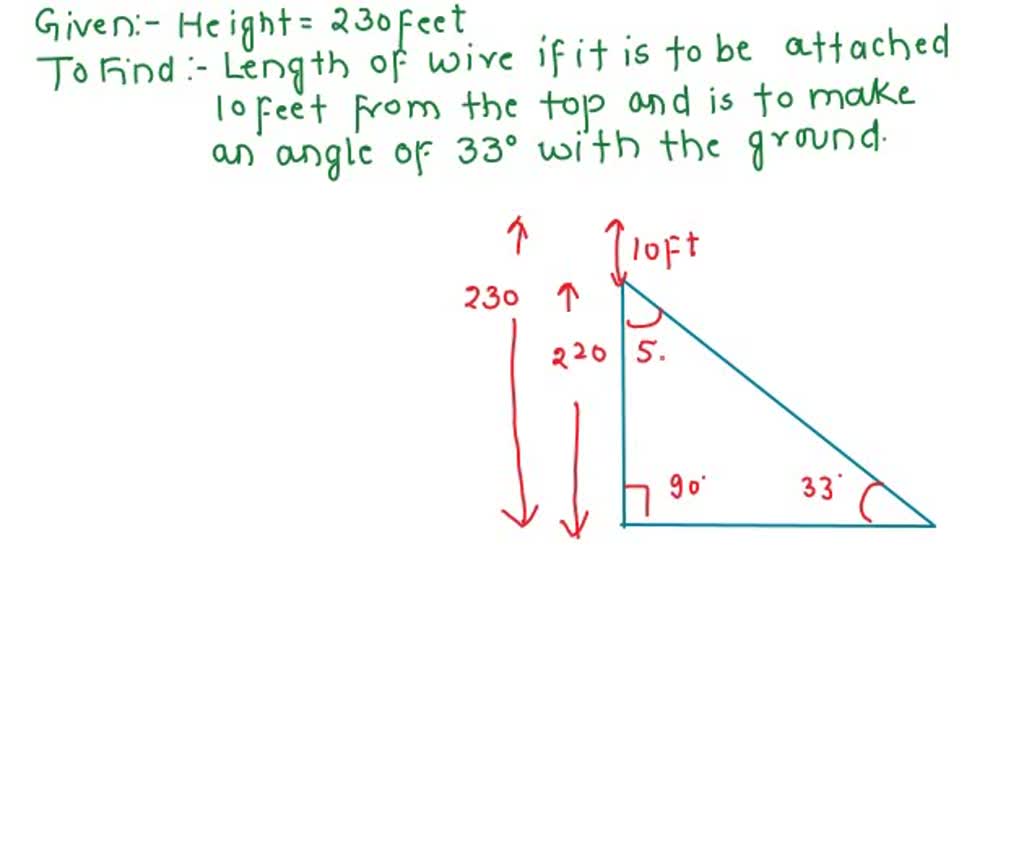 Given:- Height = 230 feet
To Find :- Length of wire if it is to be attached
10 feet from the top and is to make
an angle of 33° with the ground.
10 Ft
230
220
5.
90°
33°